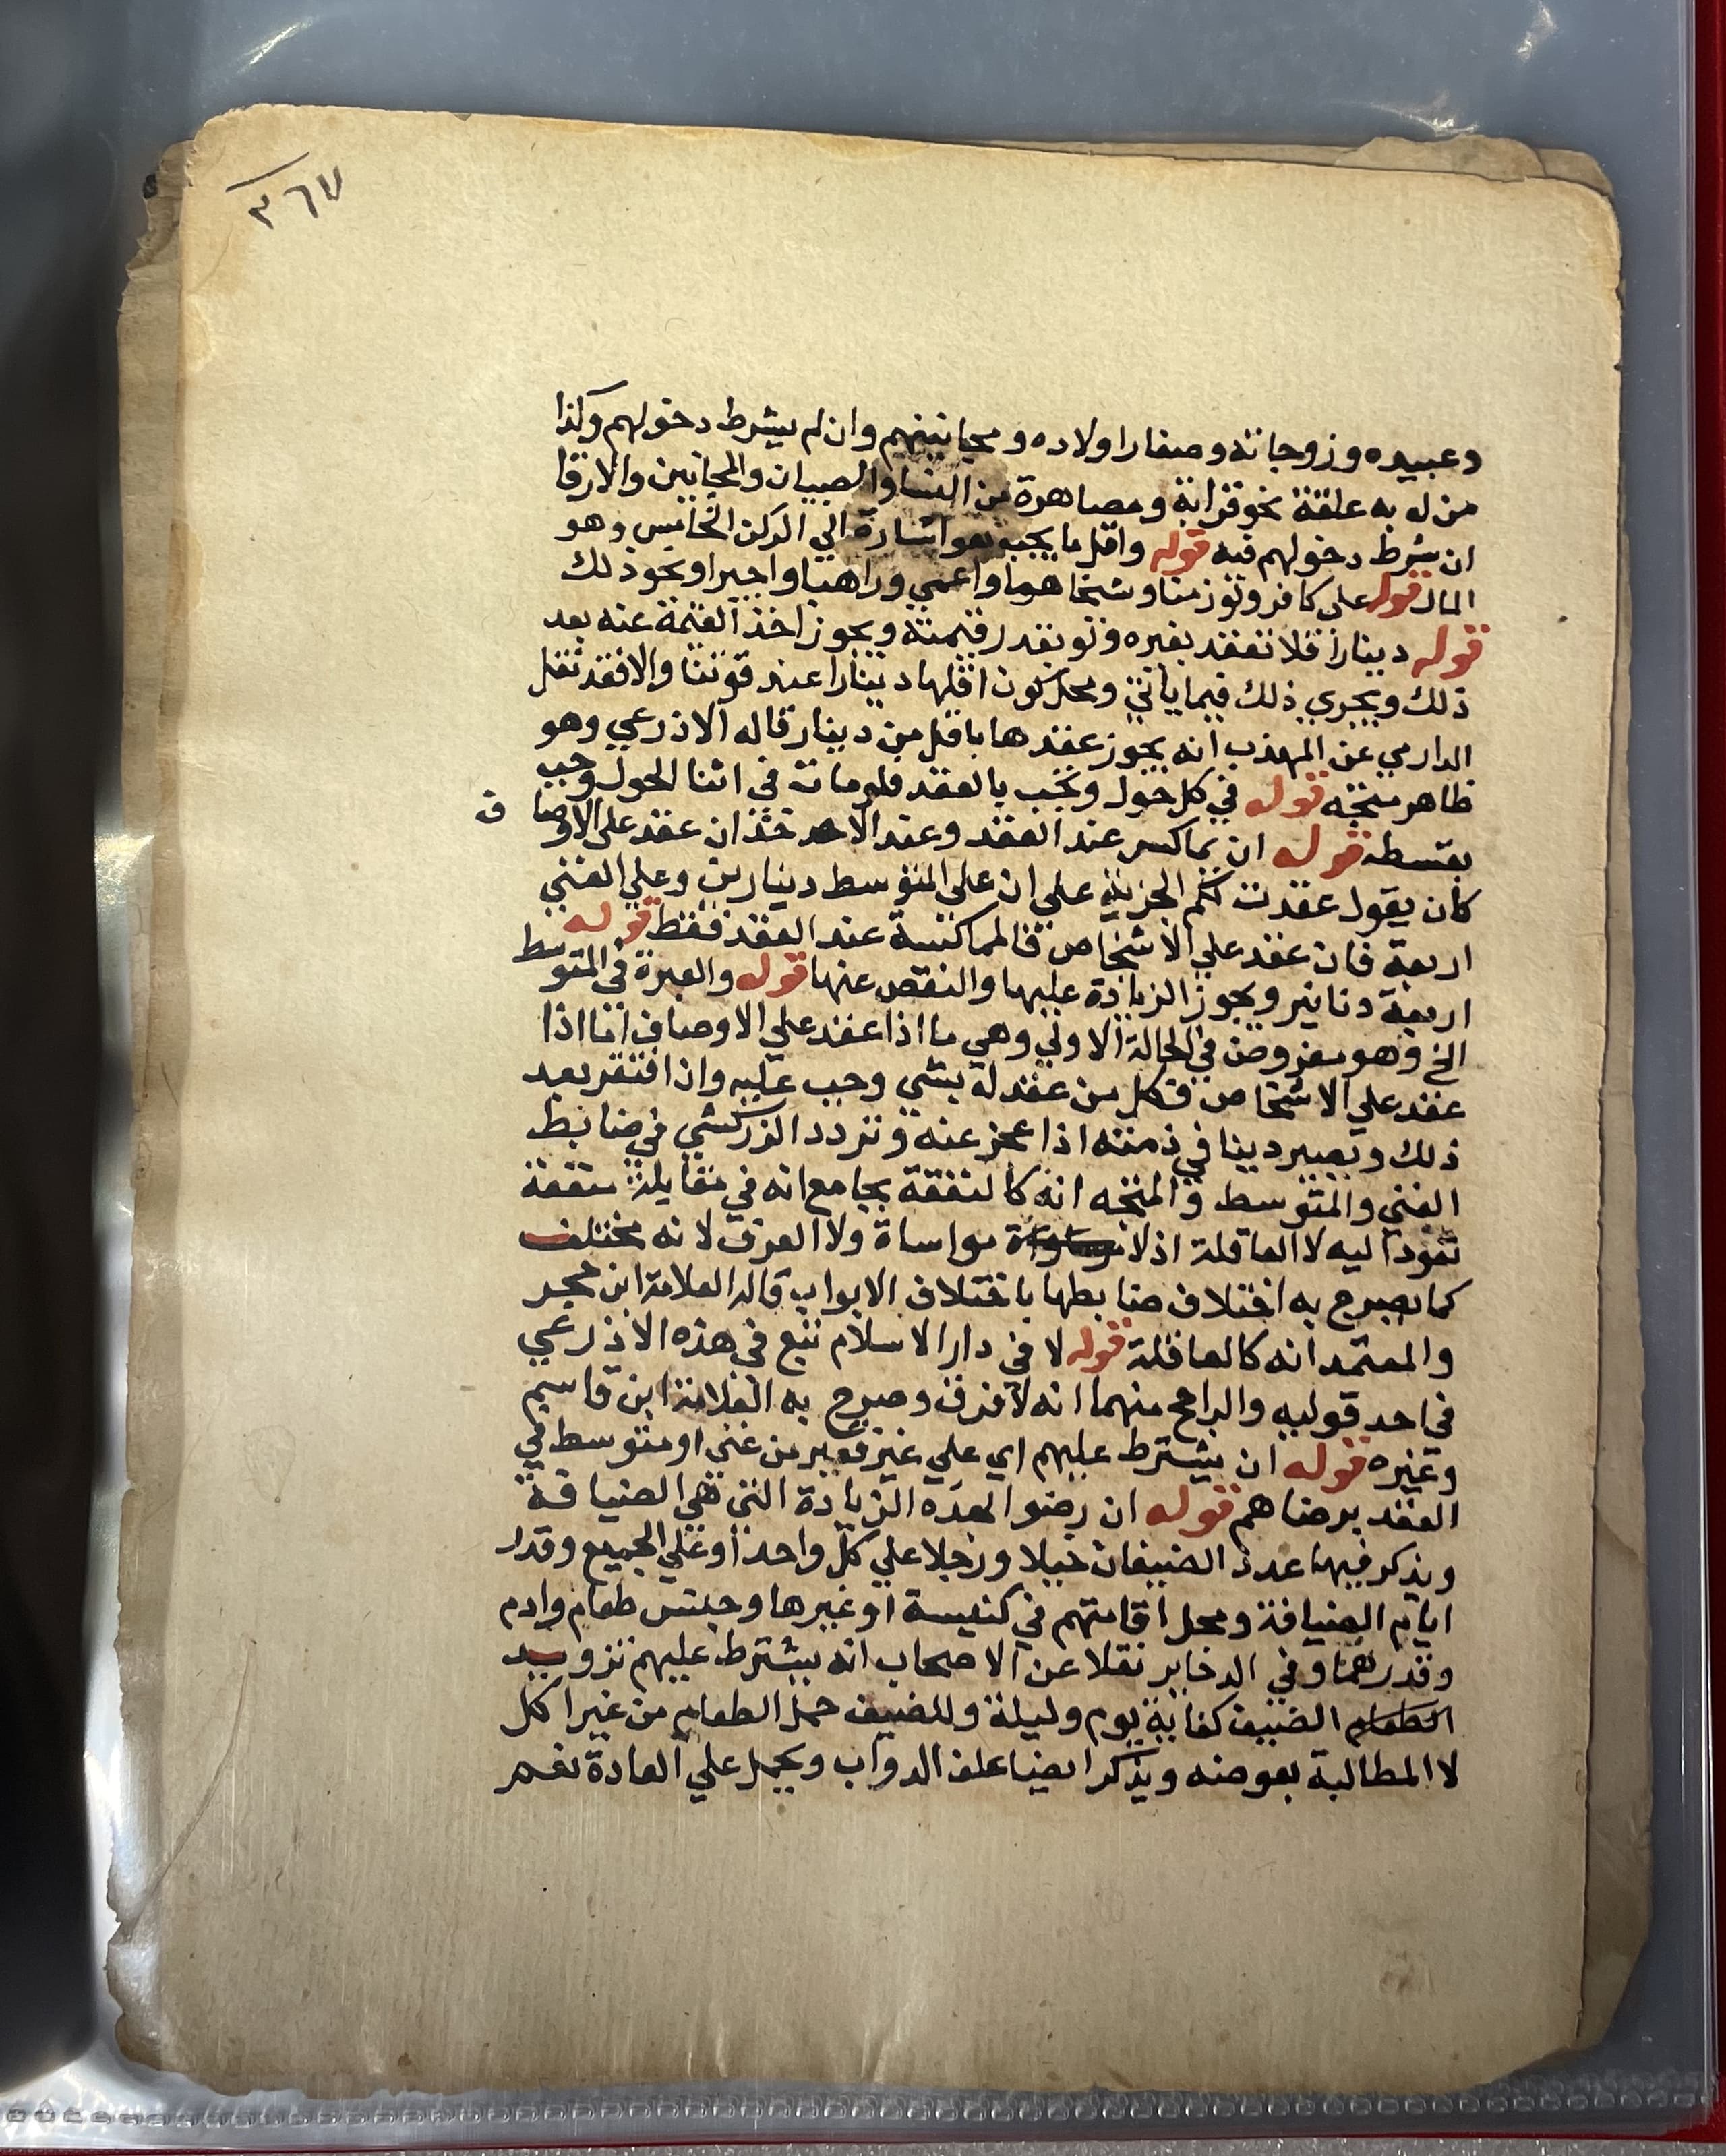 ٣٦٧
وعبيده وزوجاته وصغار اولاده ومجانينهم وان لم يشرط دخولهم وكذا
من له به علقة نحو قرابة ومصاهرة من النسا والصبيان والمجانين والارقا
ان شرط دخولهم فيه قوله واقل ما يجب هو اشارة الي الركن الخامس وهو
المال قوله على كافر ولو زمنا وشيخا هرما واعمي وراهبا واجيرا ونحو ذلك
قوله دينارا فلا تعقد بغيره ولو بقدر قيمته ويجوز اخذ القيمة عنه بعد
ذلك ويجري ذلك فيما ياتي ومحل كون اقلها دينارا عند قوتنا والا فقد نقل
الدارمي عن المهذب انه يجوز عقدها باقل من دينار قاله الاذرعي وهو
ظاهر متجه قوله في كل حول وتجب بالعقد فلو مات في اثنا الحول وجب
بقسطه قوله ان يماكس عند العقد وعند الاخذ ان عقد علي الاوصاف
كان يقول عقدت لكم الجزية علي ان علي المتوسط دينارين وعلي الغني
اربعة فان عقد علي الاشخاص فالمماكسة عند العقد فقط قوله
اربعة دنانير ويجوز الزيادة عليها والنقص عنها قوله والعبرة في المتوسط
الخ وهو مفروض في الحالة الاولي وهي ما اذا عقد علي الاوصاف اما اذا
عقد علي الاشخاص فكل من عقد له بشي وجب عليه وان افتقر بعد
ذلك ويصير دينا في ذمته اذا عجز عنه وتردد الزركشي في ضابط
الغني والمتوسط والمتجه انه كالنفقة بجامع انه في مقابلة منفعة
تعود اليه لا العاقلة اذ لا مواساة ولا العرف لانه مختلف
كما يصرح به اختلاف ضابطها باختلاف الابواب قاله العلامة ابن حجر
والمعتمد انه كالعاقلة قوله لا في دار الاسلام تبع في هذه الاذرعي
في احد قوليه والراجح منهما انه لا فرق وصرح به العلامة ابن قاسم
وغيره قوله ان يشترط عليهم اي علي غير فقير من غني او متوسط في
العقد برضاهم قوله ان رضوا بهذه الزيادة التي هي الضيافة
ويذكر فيها عدد الضيفان خيلا ورجلا علي كل واحد او علي الجميع وقدر
ايام الضيافة ومحل اقامتهم في كنيسة او غيرها وجنس طعام وادم
وقدرهما وفي الدخاير نقلا عن الاصحاب انه يشترط عليهم تزويد
الضيف كفاية يوم وليلة وللضيف حمل الطعام من غير اكل
لا المطالبة بعوضه ويذكر ايضا علف الدواب ويحمل علي العادة نعم